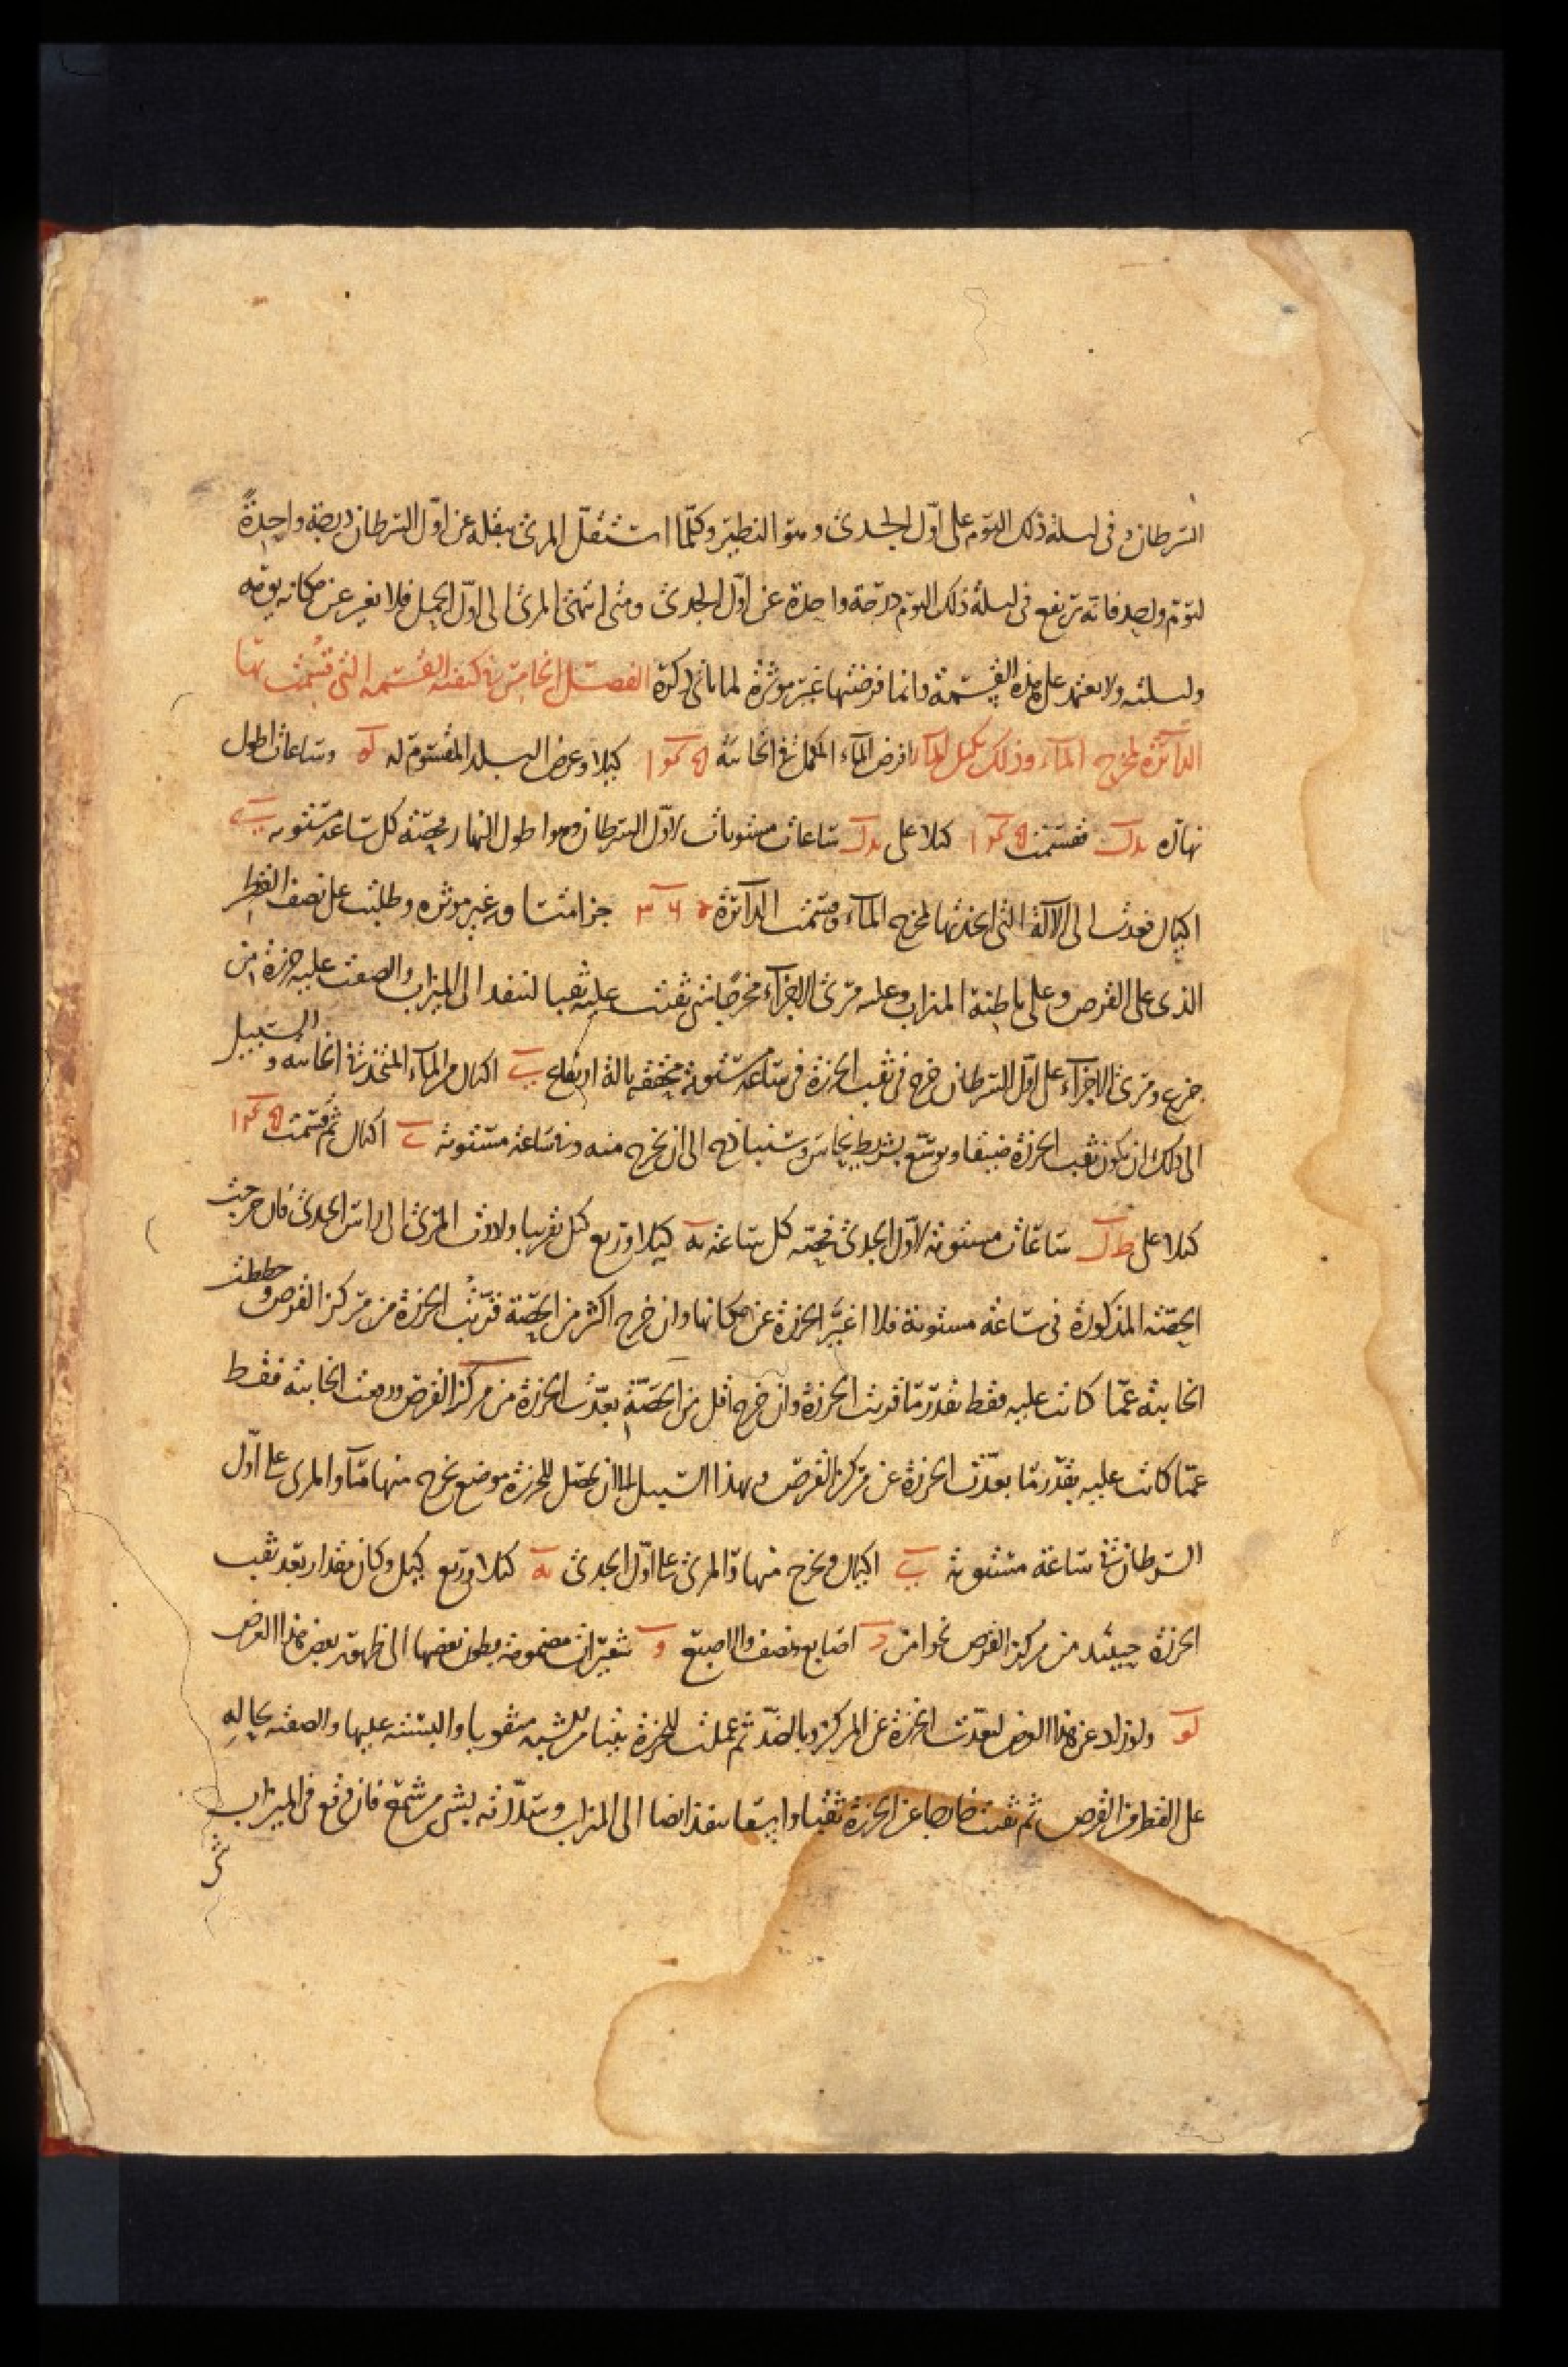 السرطان وفى ليلة ذلك اليوم على اوّل الجدى وهو النظير وكلّما استثقل المرى ينقله عن اوّل السرطان درجة واحدةً
ليوم واحد فانه يرتفع فى ليلة ذلك اليوم درجة واحدة عن اوّل الجدى ومتى انتهى المرى الى اوّل الحمل فلا يغير عن مكانه يومه
وليلته ولا يعتمد على هذه القسمة وانما فرضتها غير موثرة لما ياتى ذكره الفصل الخامس فى كيفية القسمة التى قسمت بها
الدائرة لمخرج الماء وذلك بكيل الماء افرض الماء المكمل فى الخابية كيلا وعرض البلد المقسوم له له وساعات اطول
نهاره يد ل فقسمت كيلا على يد ل ساعات مستويات لاوّل السرطان وهو اطول النهار فحصة كل ساعة مستويه يب
اكيال فعدت الى الآلة التى اتخذتها لمخرج الماء وقسمت الدائرة جزا متساويه غير موثره وطلبت على نصف القطر
الذى على القرص وعلى باطنة الميزاب وعليه مرى الاجزاء مخرجا ثم ثقبت عليه ثقبا لينفد الى الميزاب والصقت عليه خرزة من
جزع ومرى الاجزاء على اوّل السرطان خرج فى ثقب الخرزة فى ساعة مستوية محققه بالة ارتفاع يب اكيال من الماء المتخذ فى الخابية والسبيل
الى ذلك ان يكون ثقب الخرزة ضيقا ويوسّع بشريط نحاس وسنباذج الى ان يخرج منه فى ساعة مستوية يب اكيال ثم قسمت
كيلا على ط ل ساعات مستوية لاوّل الجدى فحصه كل ساعة يه كيلا وربع كيل تقريبا ولادرت المرى الى راس الجدى فان خرجت
الحصة المذكورة فى ساعة مستوية فلا اغيّر الخرزة عن مكانها وان خرج اكثر من الحصّة قرّبت الخرزة من مركز القرص وحططت
الخابية عمّا كانت عليه فقط بقدر ما قربت الخرزة وان خرج اقل من الحصّة بعّدت الخرزة من مركز القرص ورفعت الخابية فقط
عمّا كانت عليه بقدر ما بعّدت الخرزة عن مركز القرص وبهذا السبيل الى ان يحصل للخرزة موضع يخرج منها ماء والمرى على اوّل
السرطان فى ساعة مستوية يب اكيال ويخرج منها والمرى على اوّل الجدى يه كيلا وربع كيل وكان مقدار بعد ثقب
الخرزة حينئذ من مركز القرص نحوا من د اصابع ونصف والاصبع و شعيرات مضمومة بطون بعضها الى ظهور بعض هذا العرض
لو ولو زاد عن هذا العرض لبعّدت الخرزة عن المركز وبالضدّ ثم عملت للخرزة بيتا من شبه مثقوبا والبسته عليها والصقته بحاله
على القطر من القرص ثم ثقبت خارجا عن الخرزة ثقبا واسعا ينفذ ايضا الى الميزاب وسددته بشى من شمع فان وقع فى الميزاب